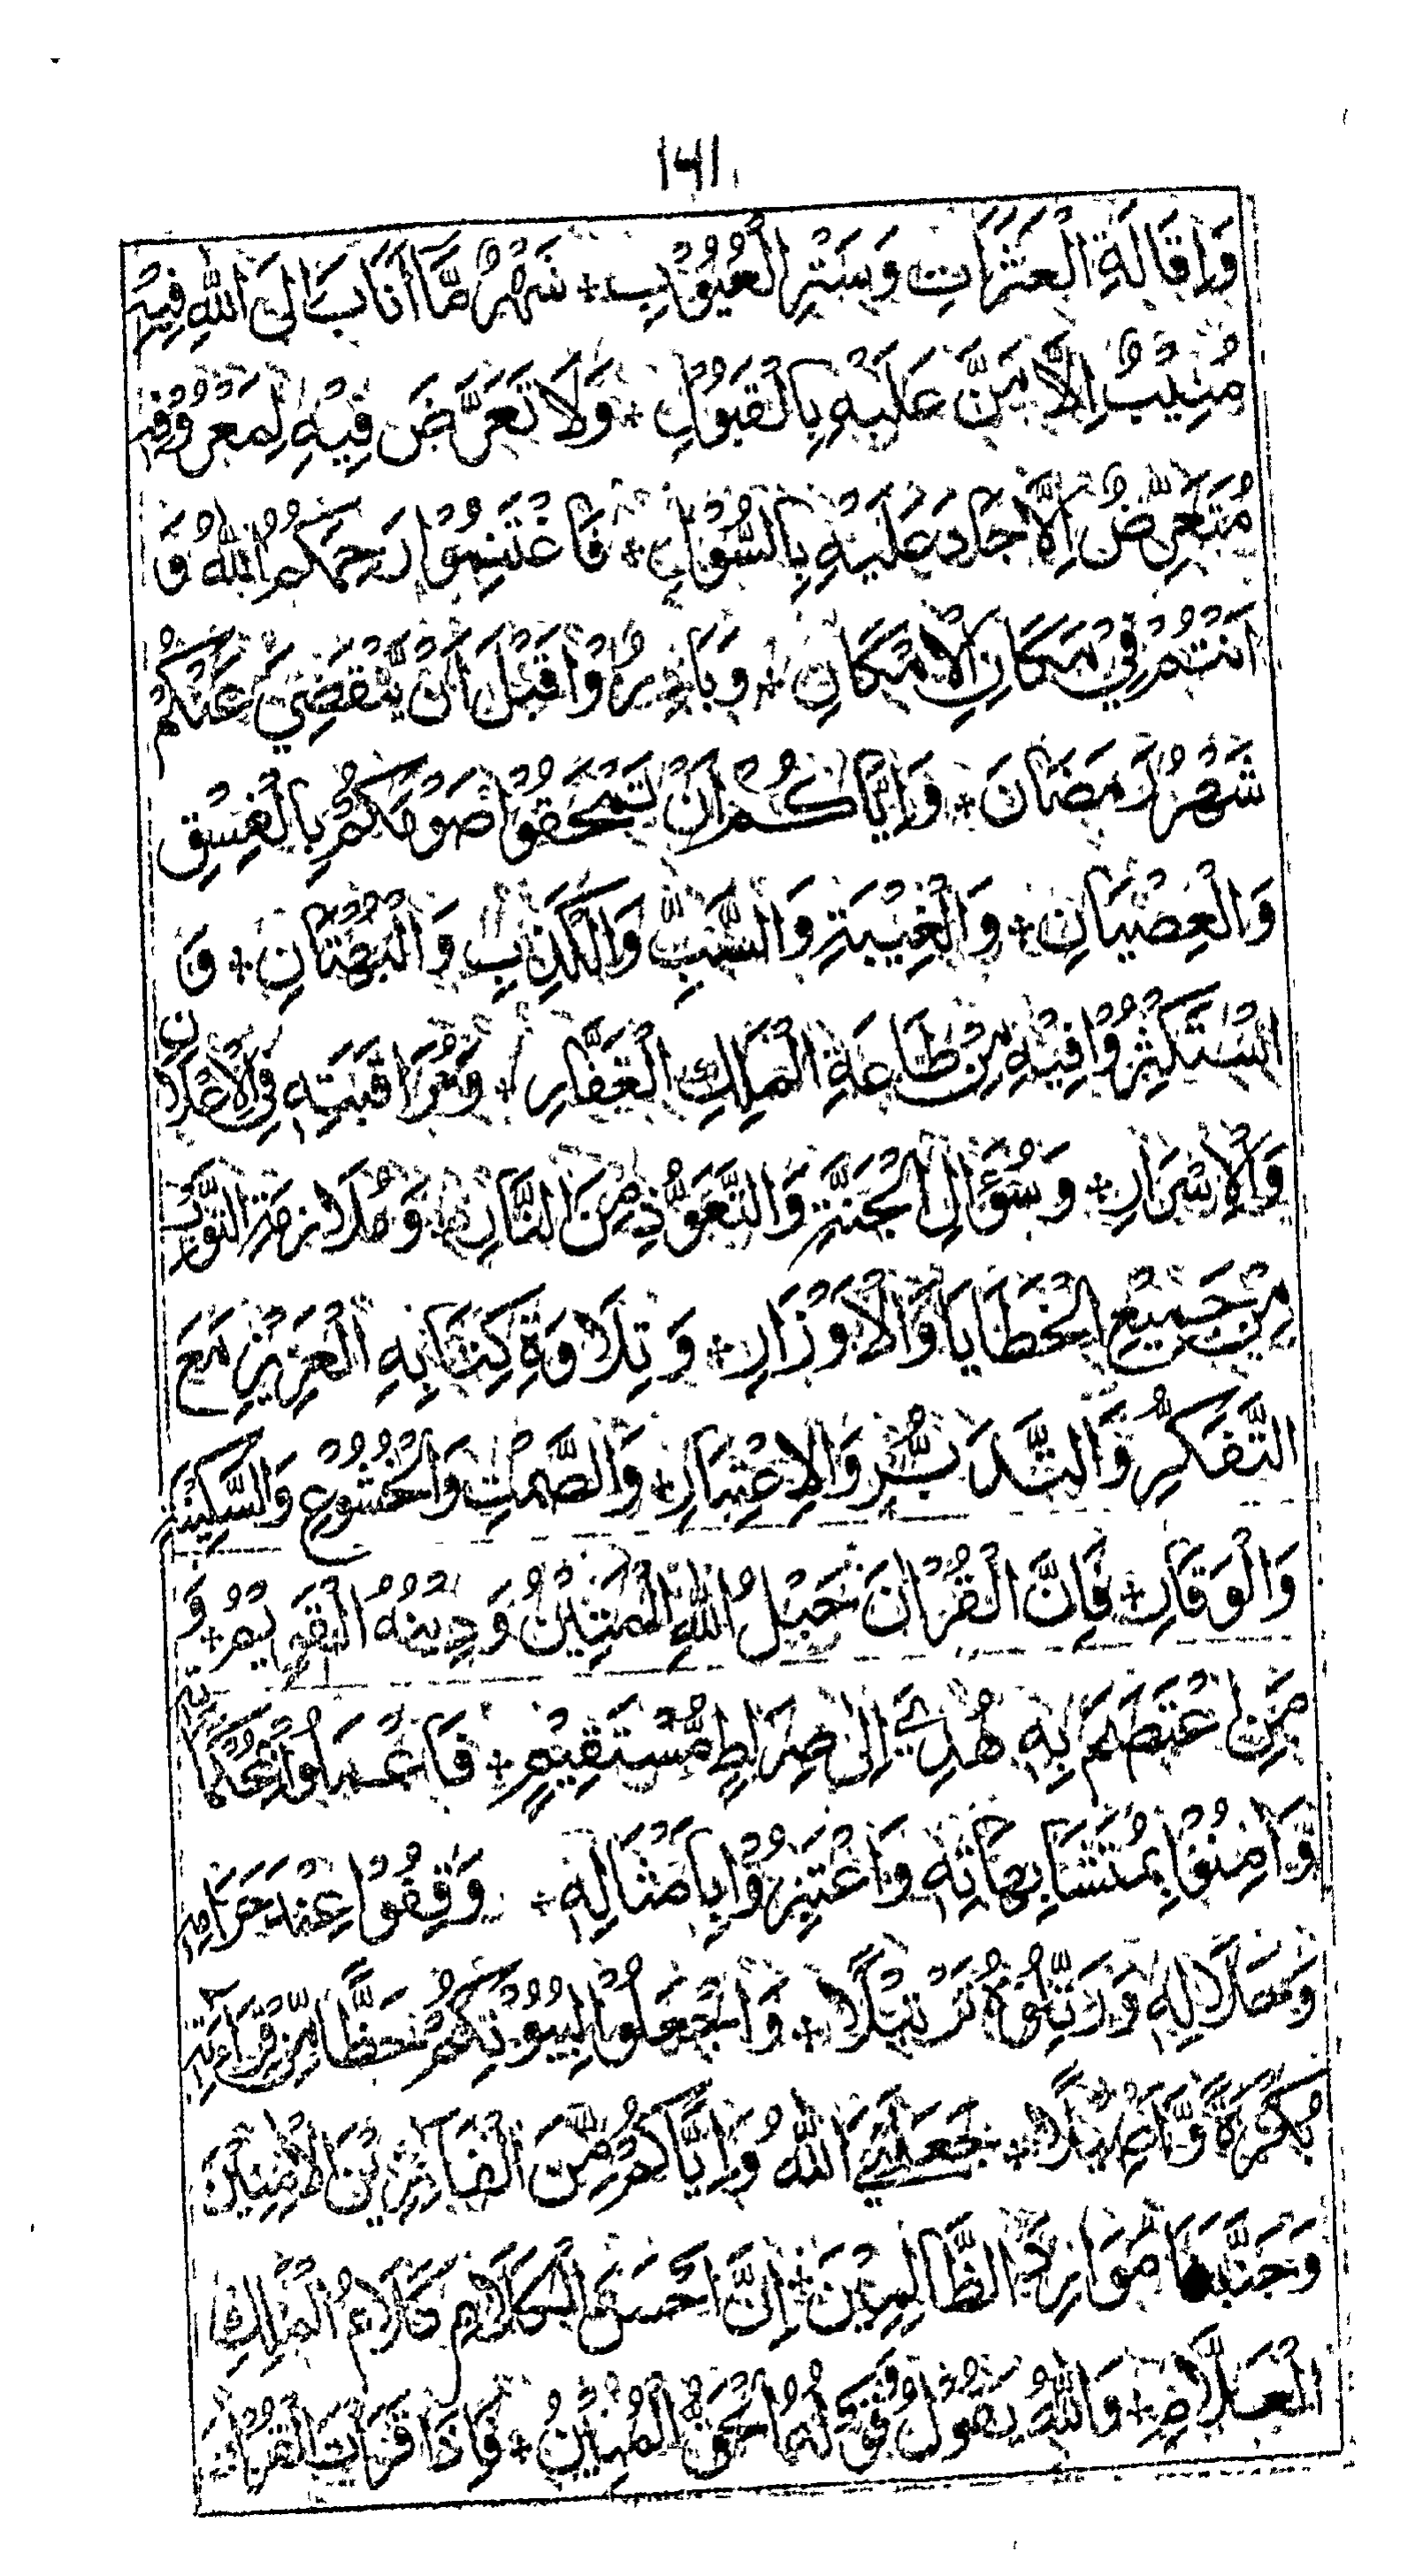 ١٦١
وَإِقَالَةِ الْعَثَرَاتِ وَسَتْرِ الْعُيُوْبِ + شَهْرٌ مَّا أَنَابَ إِلَى اللهِ فِيْهِ
مُنِيْبٌ إِلَّا مَنَّ عَلَيْهِ بِالْقَبُوْلِ + وَلَا تَعَرَّضَ فِيْهِ لِمَعْرُوْفِهِ
مُتَعَرِّضٌ إِلَّا جَادَ عَلَيْهِ بِالسُّوْلِ + فَاغْتَنِمُوْا رَحِمَكُمُ اللهُ وَ
اَنْتُمْ فِيْ مَكَانِ الْاِمْكَانِ + وَبَادِرُوْا قَبْلَ اَنْ يَّنْقَضِيَ عَنْكُمْ
شَهْرُ رَمَضَانَ + وَاِيَّاكُمْ اَنْ تَمْحَقُوْا صَوْمَكُمْ بِالْفِسْقِ
وَالْعِصْيَانِ + وَالْغِيْبَةِ وَالسَّبِّ وَالْكَذِبِ وَالْبُهْتَانِ + وَ
اسْتَكْثِرُوْا فِيْهِ مِنْ طَاعَةِ الْمَلِكِ الْغَفَّارِ + وَمُرَاقَبَتِهِ فِي الْاِعْلَانِ
وَالْاِسْرَارِ + وَسُؤَالِ الْجَنَّةِ وَالتَّعَوُّذِ مِنَ النَّارِ + وَمُلَازَمَةِ التَّوْبَةِ
مِنْ جَمِيْعِ الْخَطَايَا وَالْاَوْزَارِ + وَتِلَاوَةِ كِتَابِهِ الْعَزِيْزِ مَعَ
التَّفَكُّرِ وَالتَّدَبُّرِ وَالْاِعْتِبَارِ + وَالصَّمْتِ وَالْخُشُوْعِ وَالسَّكِيْنَةِ
وَالْوَقَارِ + فَاِنَّ الْقُرْاٰنَ حَبْلُ اللهِ الْمَتِيْنُ وَدِيْنُهُ الْقَوِيْمُ + وَ
مَنِ اعْتَصَمَ بِهِ هُدِيَ اِلٰى صِرَاطٍ مُّسْتَقِيْمٍ + فَاعْمَلُوْا بِمُحْكَمَاتِهِ
وَاٰمِنُوْا بِمُتَشَابِهَاتِهِ وَاعْتَبِرُوْا بِاَمْثَالِهِ + وَقِفُوْا عِنْدَ حَرَامِهِ
وَحَلَالِهِ وَرَتِّلُوْهُ تَرْتِيْلًا + وَاجْعَلُوْا لِبُيُوْتِكُمْ حَظًّا مِّنْ قِرَاءَتِهِ
بُكْرَةً وَّاَصِيْلًا + جَعَلَنِيَ اللهُ وَاِيَّاكُمْ مِّنَ الْفَائِزِيْنَ الْاٰمِنِيْنَ
وَجَنَّبَنَا مَوَارِدَ الظَّالِمِيْنَ + اِنَّ اَحْسَنَ الْكَلَامِ كَلَامُ الْمَلِكِ
الْعَلَّامِ + وَاللهُ يَقُوْلُ وَقَوْلُهُ الْحَقُّ الْمُبِيْنُ + وَاِذَا قَرَأْتَ الْقُرْاٰنَ